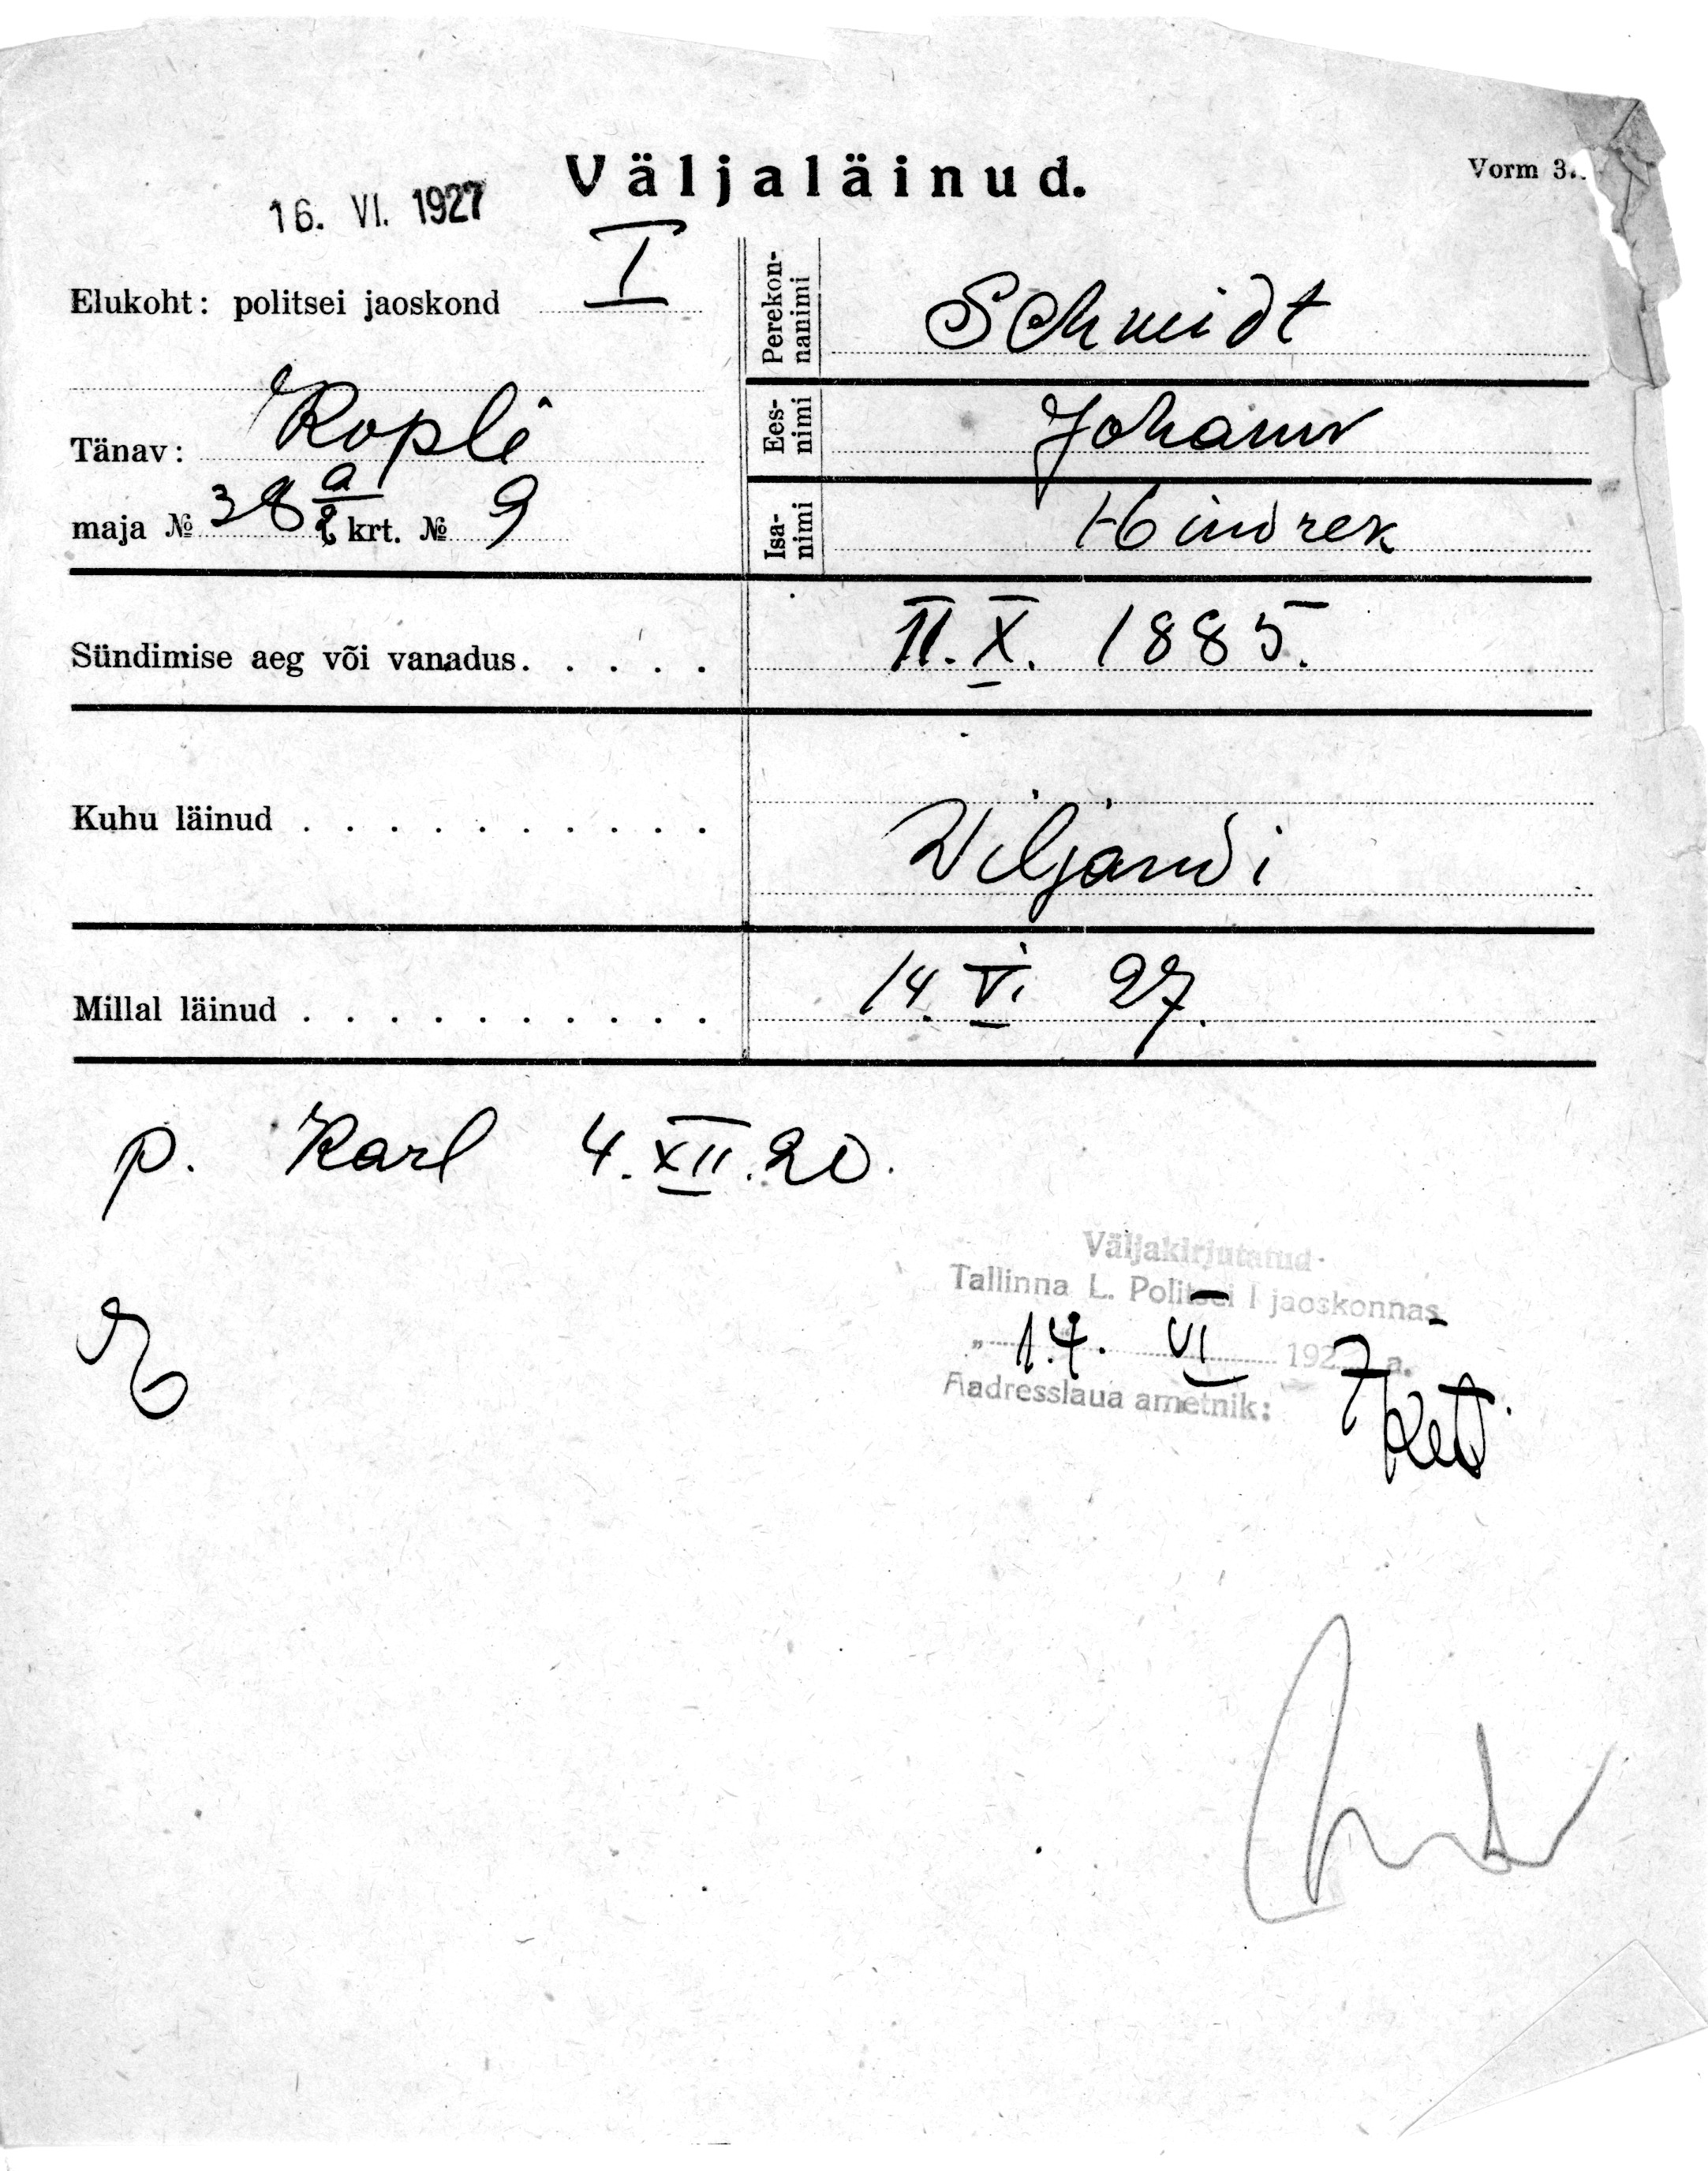 Väljaläinud.
Vorm 3.
16. VI. 1927
Elukoht: politsei jaoskond I
Tänav: Kopli
maja № 38 a/2 krt. № 9
Perekon-
nanimi Schmidt
Ees-
nimi Johann
Isa-
nimi Hindrek
Sündimise aeg või vanadus. . . . . 11. X. 1885.
Kuhu läinud . . . . . . . . . . Viljandi
Millal läinud . . . . . . . . . . 14. VI 27.
p. Karl 4. XII. 20.
Väljakirjutatud
Tallinna L. Politsei I jaoskonnas
„ 14. VI 1927 a.
Aadresslaua ametnik: